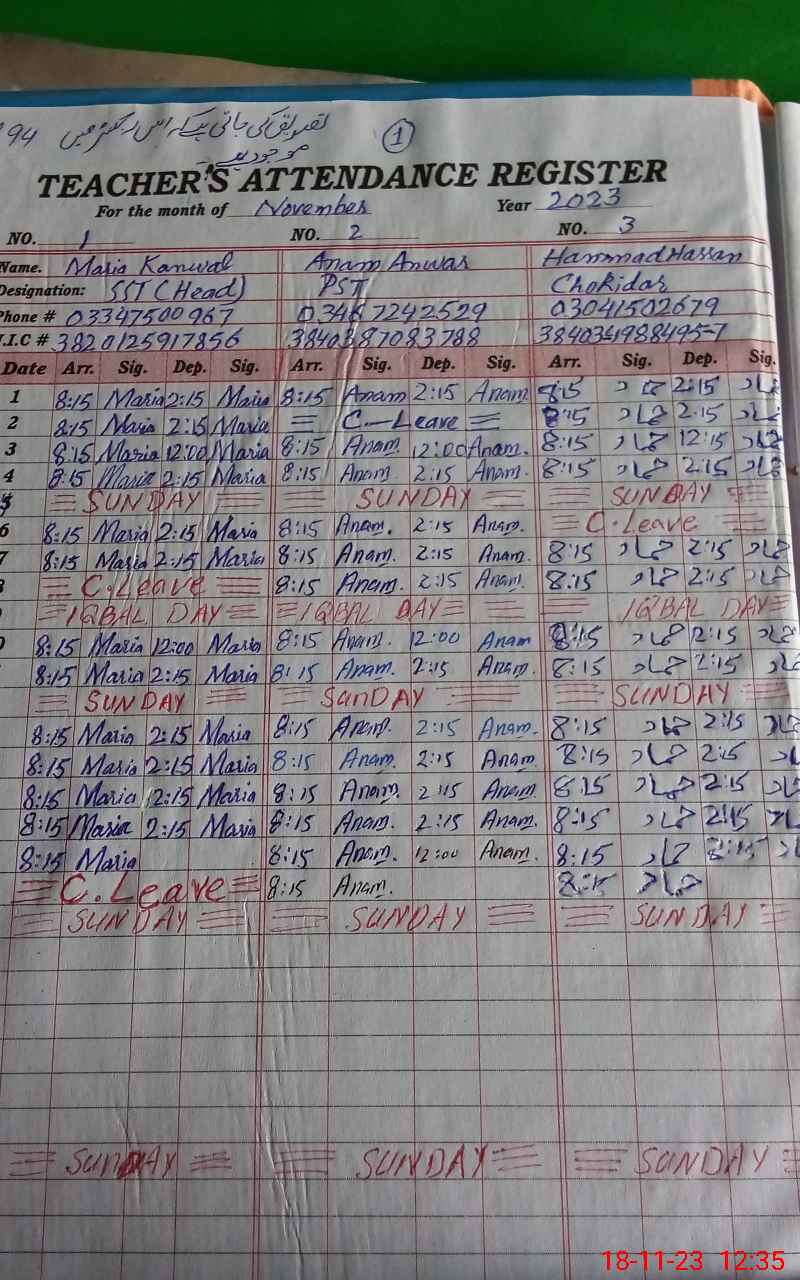 94 تصدیق کی جاتی ہے کہ اس رجسٹر میں ①
موجود ہے
TEACHER'S ATTENDANCE REGISTER
For the month of November Year 2023
NO. 1 NO. 2 NO. 3
Name. Maria Kanwal Anam Anwar Hammad Hassan
Designation: SST (Head) PST Chokidar
Phone # 03347500967 03467242529 03041502679
I.C # 3820125917856 3840387083788
Date Arr. Sig. Dep. Sig. Arr. Sig. Dep. Sig. Arr. Sig. Dep. Sig.
1 8:15 Maria 2:15 Maria 8:15 Anam 2:15 Anam 8:15 حماد 2:15 حماد
2 8:15 Maria 2:15 Maria C-Leave 8:15 حماد 2:15 حماد
3 8:15 Maria 12:00 Maria 8:15 Anam. 12:00 Anam. 8:15 حماد 12:15 حماد
4 8:15 Maria 2:15 Maria 8:15 Anam. 2:15 Anam. 8:15 حماد 2:15 حماد
5 SUNDAY SUNDAY SUNDAY
6 8:15 Maria 2:15 Maria 8:15 Anam. 2:15 Anam. C.Leave
7 8:15 Maria 2:15 Maria 8:15 Anam. 2:15 Anam. 8:15 حماد 2:15 حماد
C.Leave 8:15 Anam. 2:15 Anam. 8:15 حماد 2:15 حماد
IQBAL DAY IQBAL DAY IQBAL DAY
8:15 Maria 12:00 Maria 8:15 Anam. 12:00 Anam 8:15 حماد 12:15 حماد
8:15 Maria 2:15 Maria 8:15 Anam. 2:15 Anam. 8:15 حماد 2:15 حماد
SUNDAY SunDAY SUNDAY
8:15 Maria 2:15 Maria 8:15 Anam. 2:15 Anam. 8:15 حماد 2:15 حماد
8:15 Maria 2:15 Maria 8:15 Anam. 2:15 Anam. 8:15 حماد 2:15 حماد
8:15 Maria 2:15 Maria 8:15 Anam. 2:15 Anam. 8:15 حماد 2:15 حماد
8:15 Maria 2:15 Maria 8:15 Anam. 2:15 Anam. 8:15 حماد 2:15 حماد
8:15 Maria 8:15 Anam. 12:00 Anam. 8:15 حماد حماد
C.Leave 8:15 Anam. 8:15 حماد
SUNDAY SUNDAY SUNDAY
SUNDAY SUNDAY SUNDAY
18-11-23 12:35